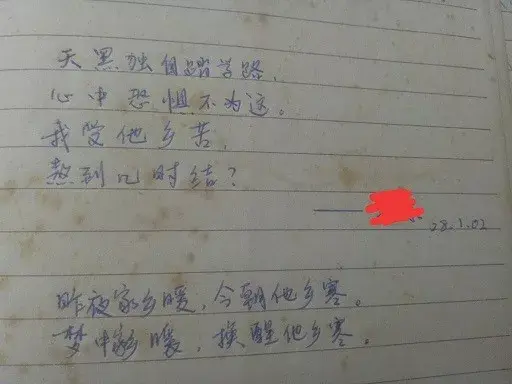 天黑独自踏学路,
心中恐惧不为这。
我受他乡苦,
熬到几时结?
28.1.02
昨夜家乡暖,今朝他乡寒。
梦中暖,换醒他乡寒。